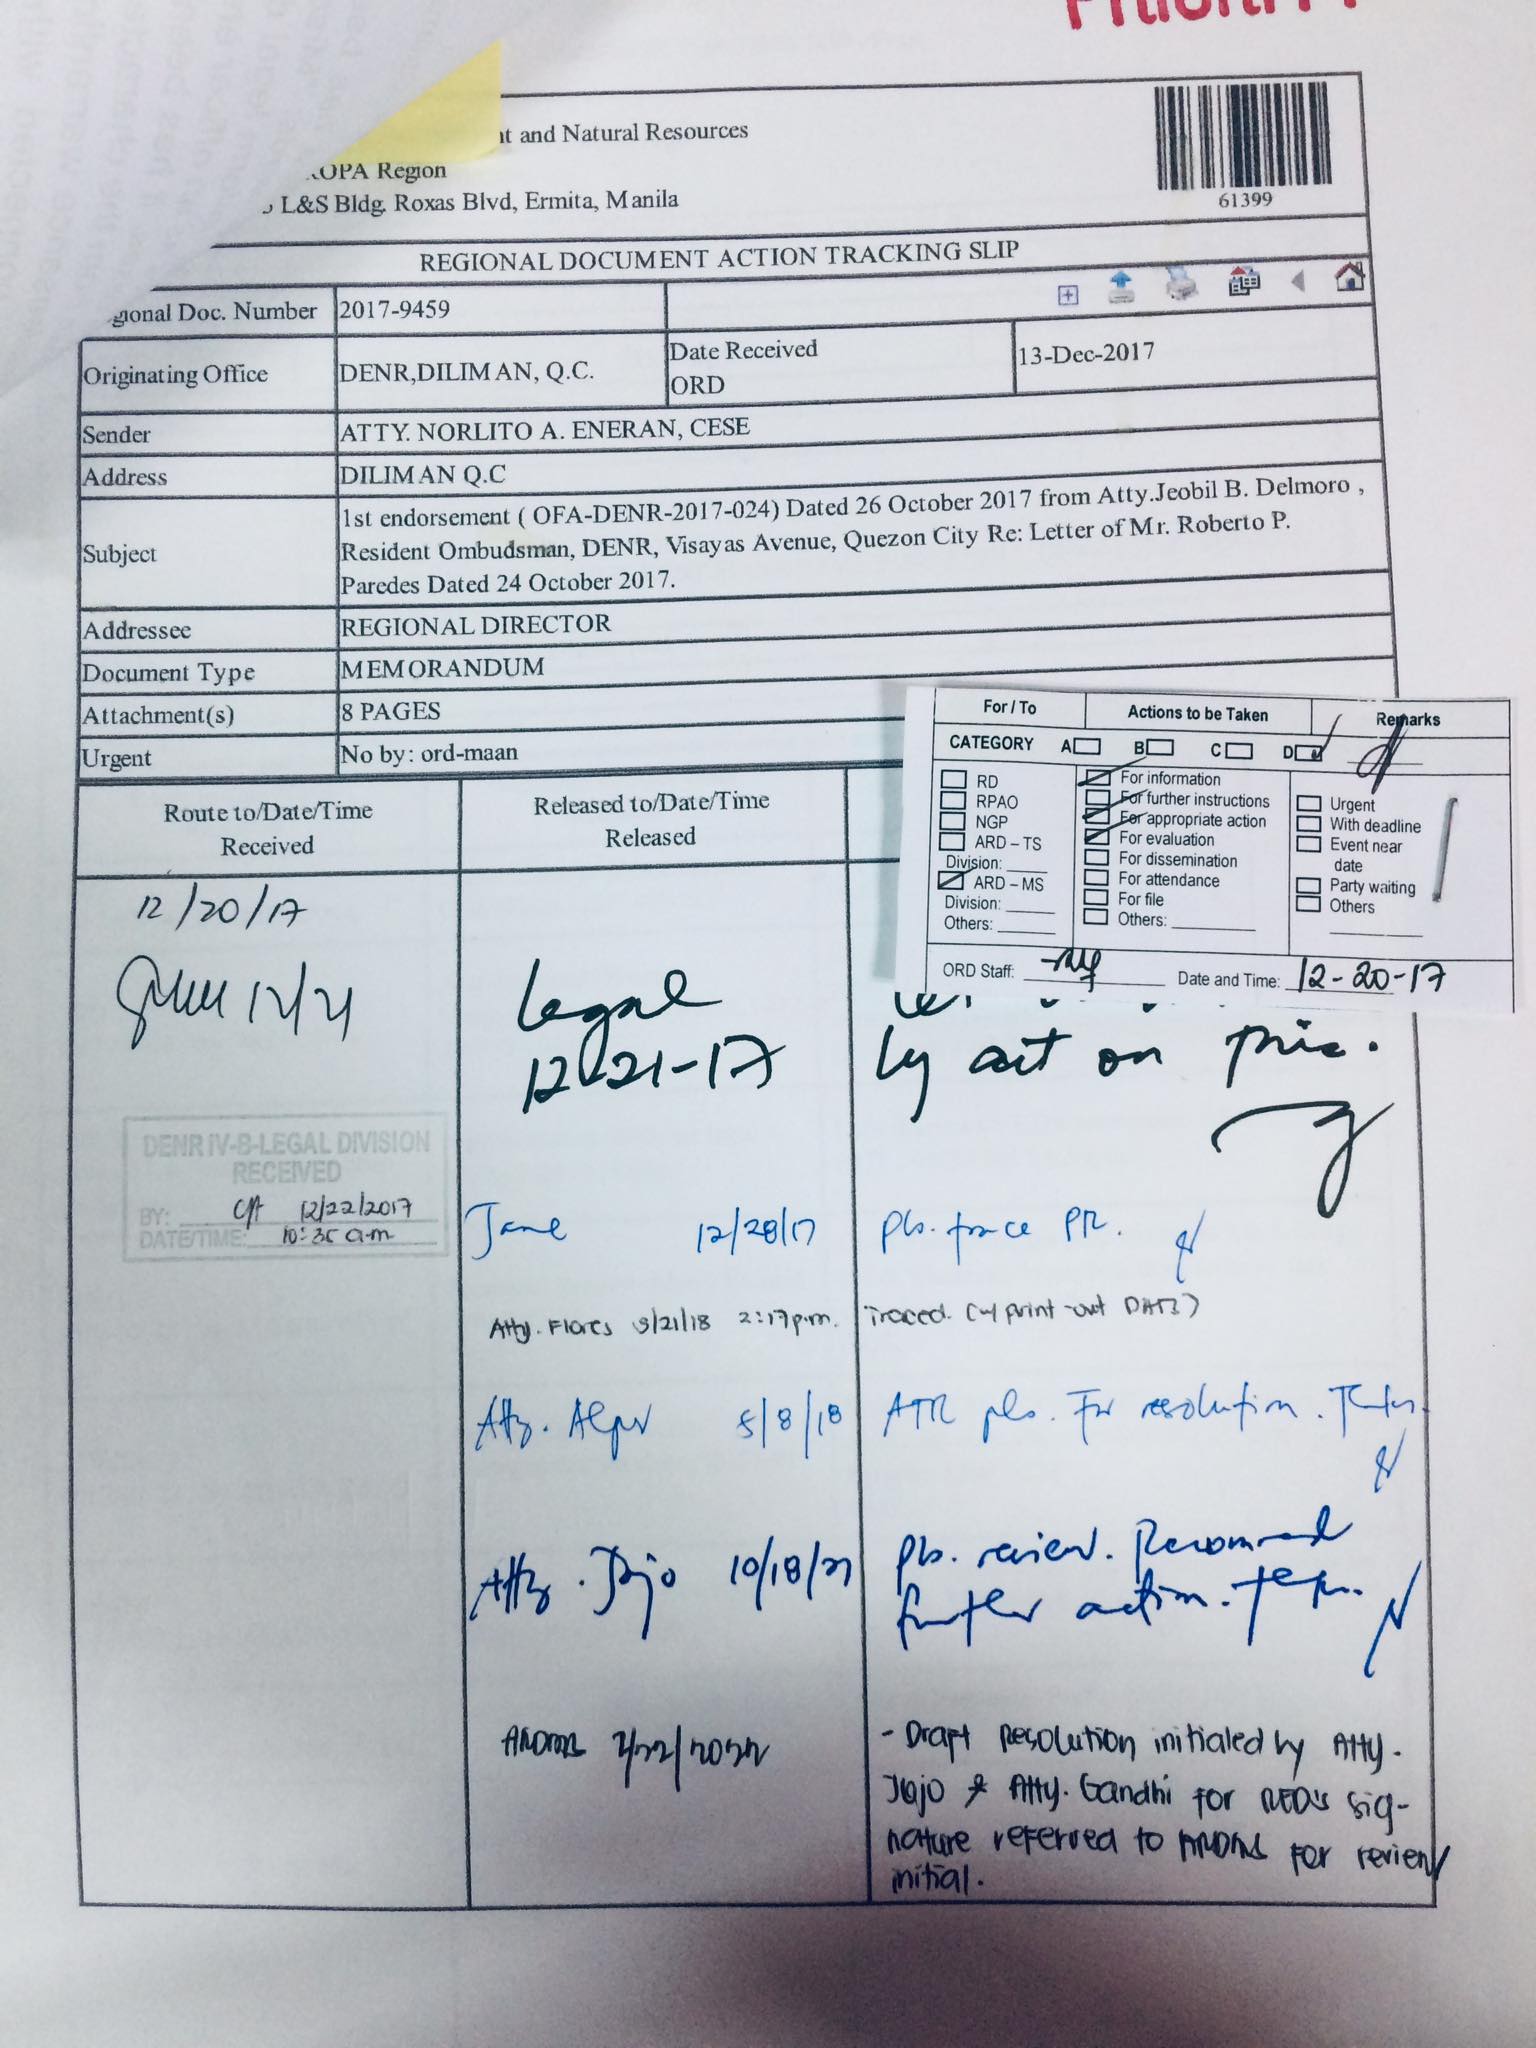 nt and Natural Resources
OPA Region
L&S Bldg. Roxas Blvd, Ermita, Manila
61399
REGIONAL DOCUMENT ACTION TRACKING SLIP
gional Doc. Number 2017-9459
Originating Office DENR,DILIMAN, Q.C. Date Received ORD 13-Dec-2017
Sender ATTY. NORLITO A. ENERAN, CESE
Address DILIMAN Q.C
Subject 1st endorsement ( OFA-DENR-2017-024) Dated 26 October 2017 from Atty.Jeobil B. Delmoro ,
Resident Ombudsman, DENR, Visayas Avenue, Quezon City Re: Letter of Mr. Roberto P.
Paredes Dated 24 October 2017.
Addressee REGIONAL DIRECTOR
Document Type MEMORANDUM
Attachment(s) 8 PAGES
Urgent No by: ord-maan
For / To Actions to be Taken Remarks
CATEGORY A B C D
RD For information
RPAO For further instructions Urgent
NGP For appropriate action With deadline
ARD – TS For evaluation Event near date
Division: For dissemination
ARD – MS For attendance Party waiting
Division: For file Others
Others: Others:
ORD Staff: Date and Time: 12-20-17
Route to/Date/Time Received
Released to/Date/Time Released
12/20/17
12/21
Legal
12-21-17
act on this.
DENR IV-B-LEGAL DIVISION
RECEIVED
BY: 12/22/2017
DATE/TIME: 10:35 a.m
Jane 12/28/17 Pls. trace PR.
Atty. Flores 2:17p.m. Traced. (w/ print-out DATS)
Atty. 8/18 ATR pls. For resolution.
Atty. Jojo 10/18/21 Pls. review. Recommend
further action.
ARDMS 2/22/2022 - Draft Resolution initialed by Atty.
Jojo & Atty. Gandhi for RED's sig-
nature referred to ARDMS for review/
initial.